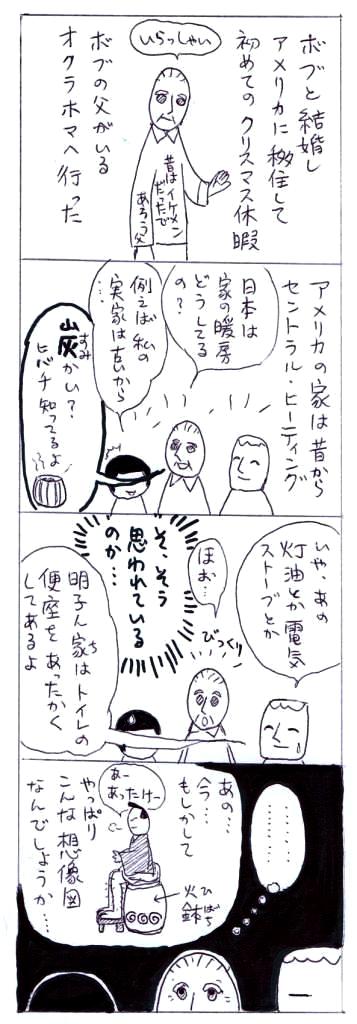 ボブと結婚し
アメリカに移住して
初めてのクリスマス休暇
いらっしゃい
昔はイケメン
だったで
あろう父
ボブの父がいる
オクラホマへ行った
アメリカの家は昔から
セントラル・ヒーティング
日本は
家の暖房
どうしてる
の?
例えば私の
実家は古いから
…
炭かい?
すみ
ヒバチ知ってるよ
いや、あの
灯油とか電気
ストーブとか
ほお…
びっくり
そ、そう
思われている
のか…
明子ん家はトイレの
ち
便座をあったかく
してあるよ
………
あの…
今…
もしかして
あー
あったけー
火鉢
ひばち
やっぱり
こんな想像図
なんでしょうか…